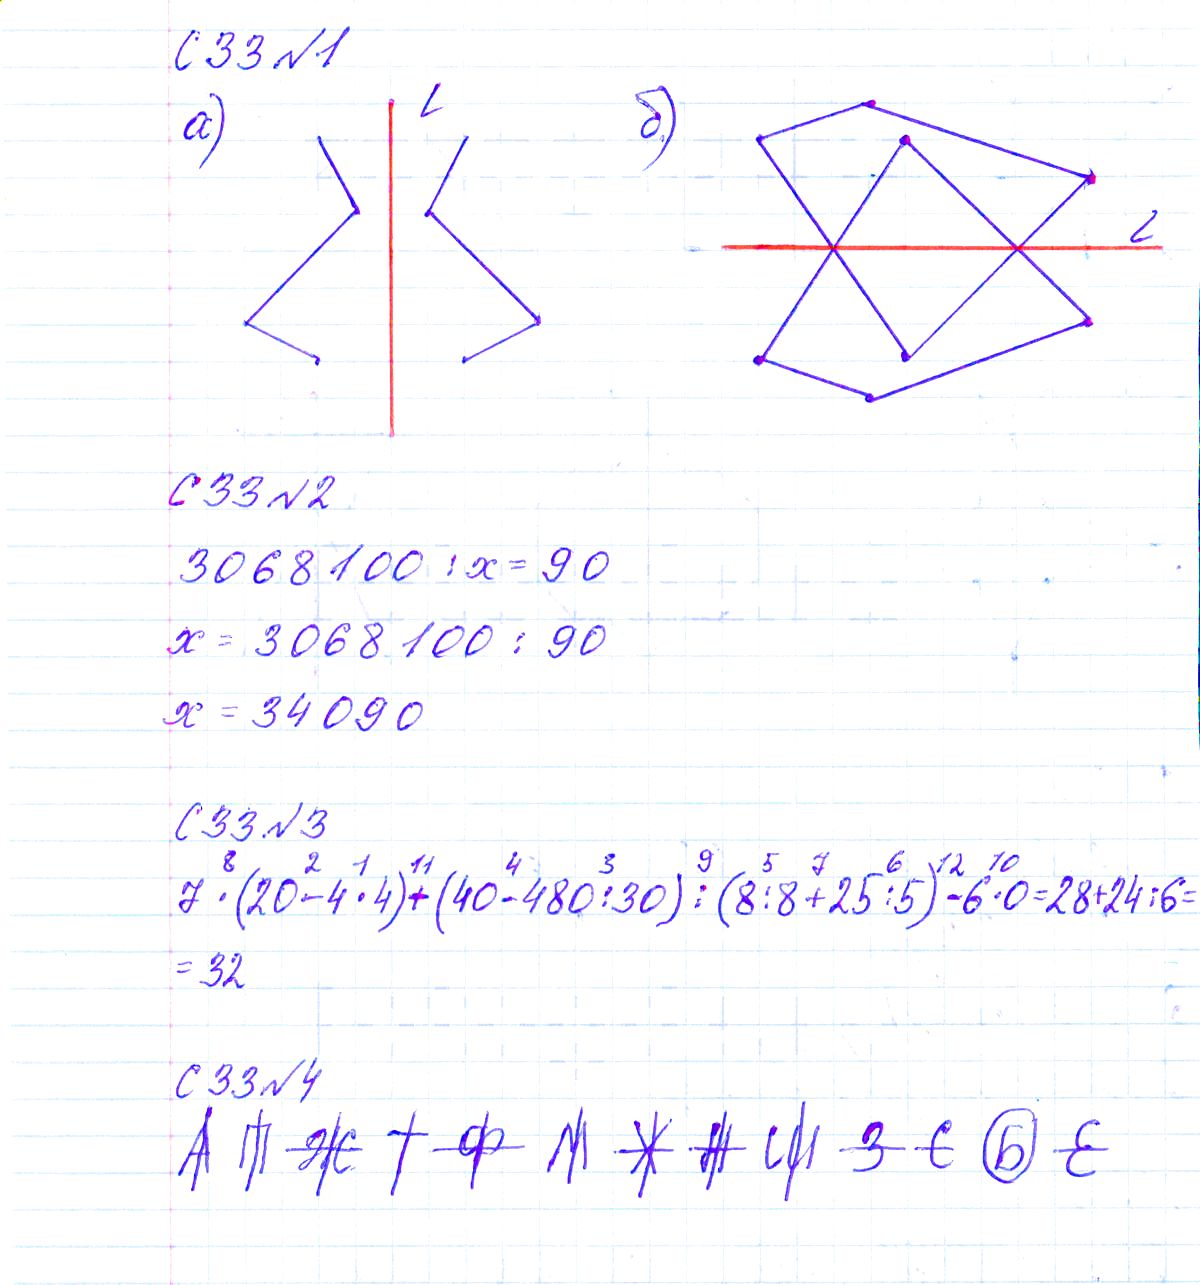 С 33 №1
а) l б) l
С 33 №2
3068100 : x = 90
x = 3068100 : 90
x = 34090
С 33 №3
8 2 1 11 4 3 9 5 7 6 12 10
7 · (20 - 4 · 4) + (40 - 480 : 30) : (8 : 8 + 25 : 5) - 6 · 0 = 28 + 24 : 6 =
= 32
С 33 №4
А П Ж Т Ф М Ж Н Ш З С Б Е